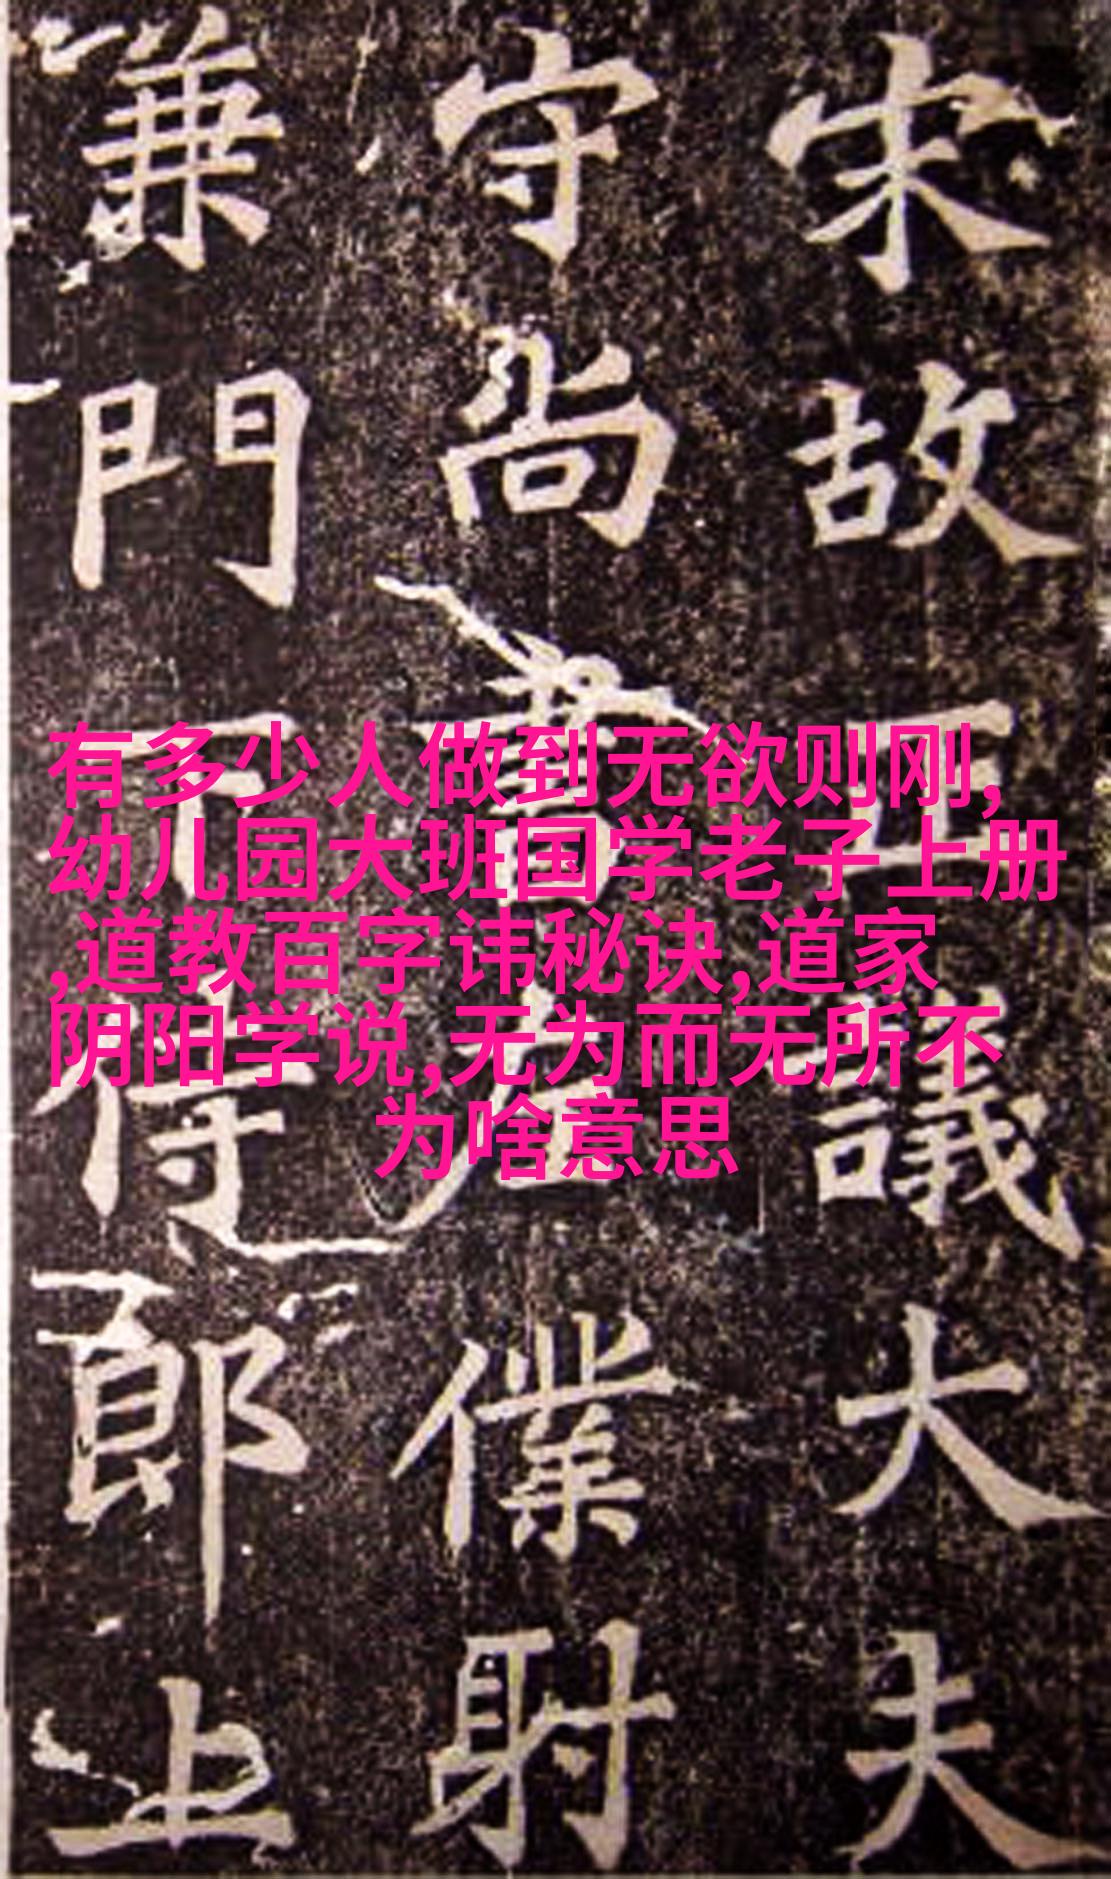 宋故正議大夫
守尚書左僕射
兼門下侍郎上
有多少人做到无欲则刚,
幼儿园大班国学老子上册
,道教百字讳秘诀,道家
阴阳学说,无为而无所不
为啥意思